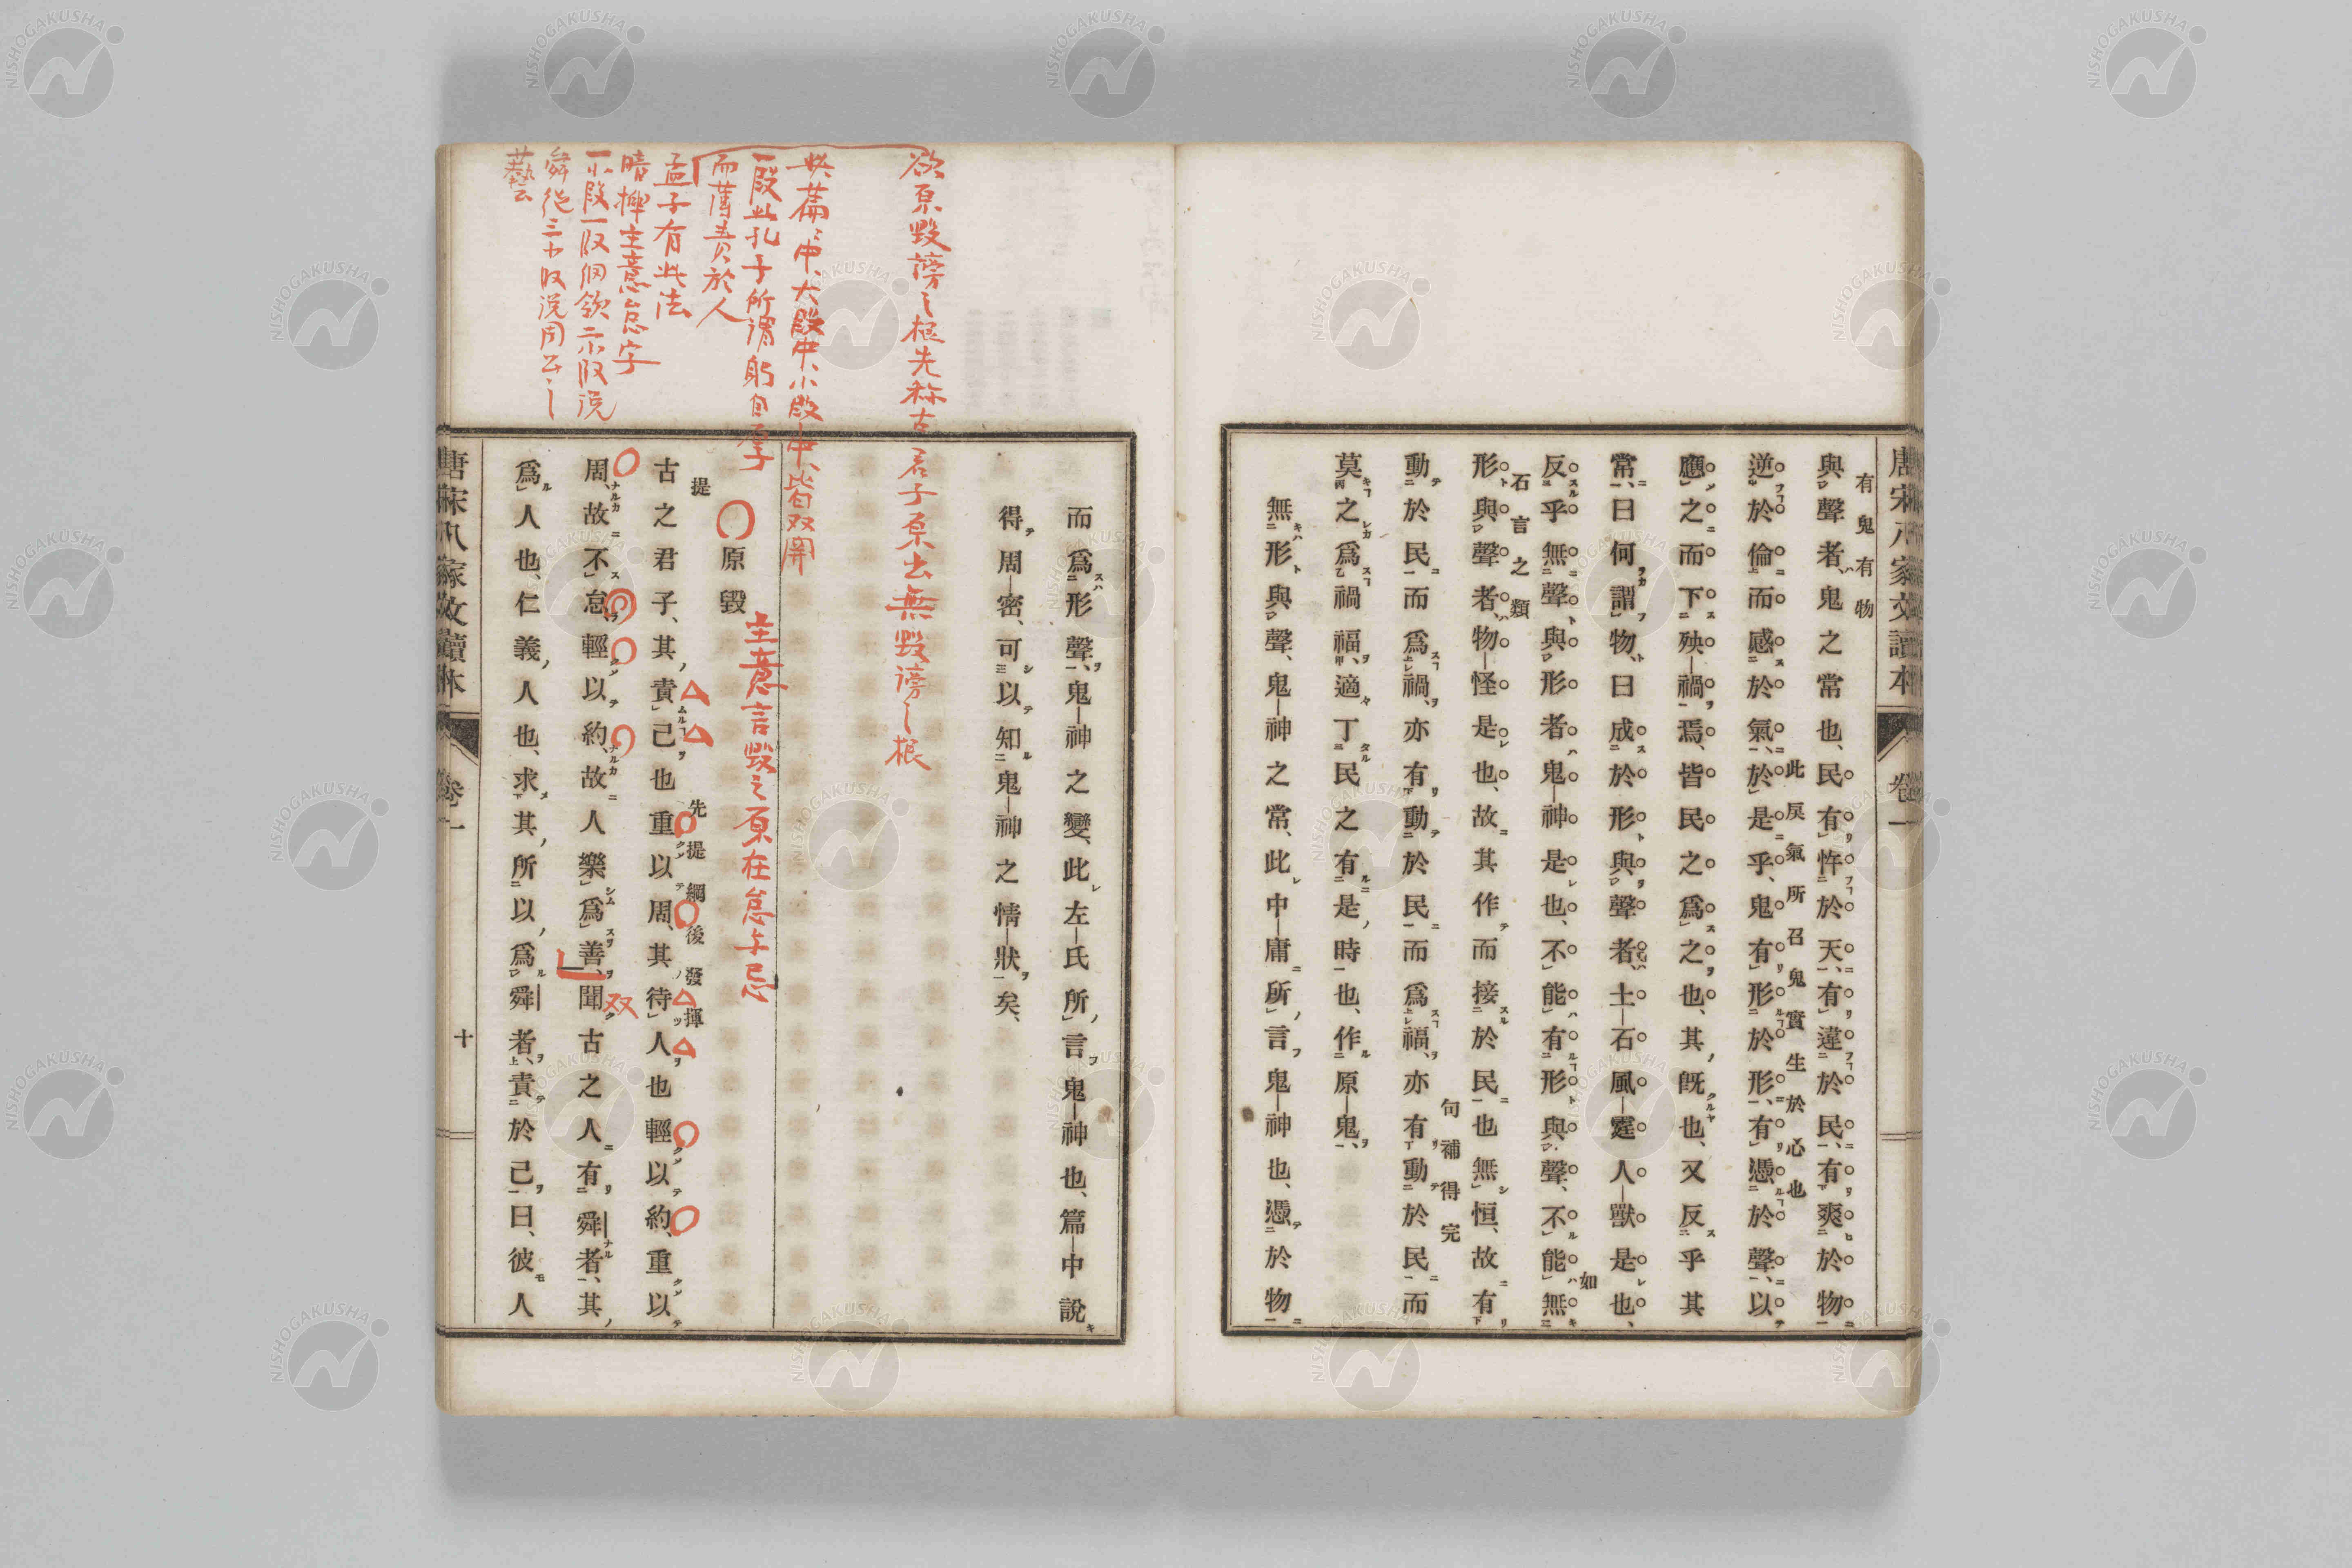 唐宋八家文讀本
卷一
有鬼有物
與聲者、鬼之常也、民有忤於天、有違於民、有爽於物
此戾氣所召鬼實生於心也
逆於倫而感於氣、於是乎、鬼有形於形、有憑於聲、以
應之而下殃禍焉、皆民之爲之也、其旣也、又反乎其
常、曰何謂物、曰成於形與聲者、土石風霆人獸是也、
如
反乎無聲與形者、鬼神是也、不能有形與聲、不能無
石言之類
形與聲者、物怪是也、故其作而接於民也無恒、故有
句補得完
動於民而爲禍、亦有動於民而爲福、亦有動於民而
莫之爲禍福、適丁民之有是時也、作原鬼、
無形與聲、鬼神之常、此中庸所言鬼神也、憑於物
而爲形聲、鬼神之變、此左氏所言鬼神也、篇中說
得周密、可以知鬼神之情狀矣、
欲原毀謗之根先称古君子原出無毀謗之根
中、大段中、小段中、皆双開
一段此孔子所謂躬自厚
而薄責於人
孟子有此法
主意怠忌字
原毀
主意言毀之原在怠与忌
提
先提綱後發揮
古之君子、其責己也重以周、其待人也輕以約、重以
周、故不怠、輕以約、故人樂爲善、聞古之人有舜者、其
双
爲人也、仁義人也、求其所以爲舜者、責於己曰、彼人
唐宋八家文讀本
卷一
十
NISHOGAKUSHA